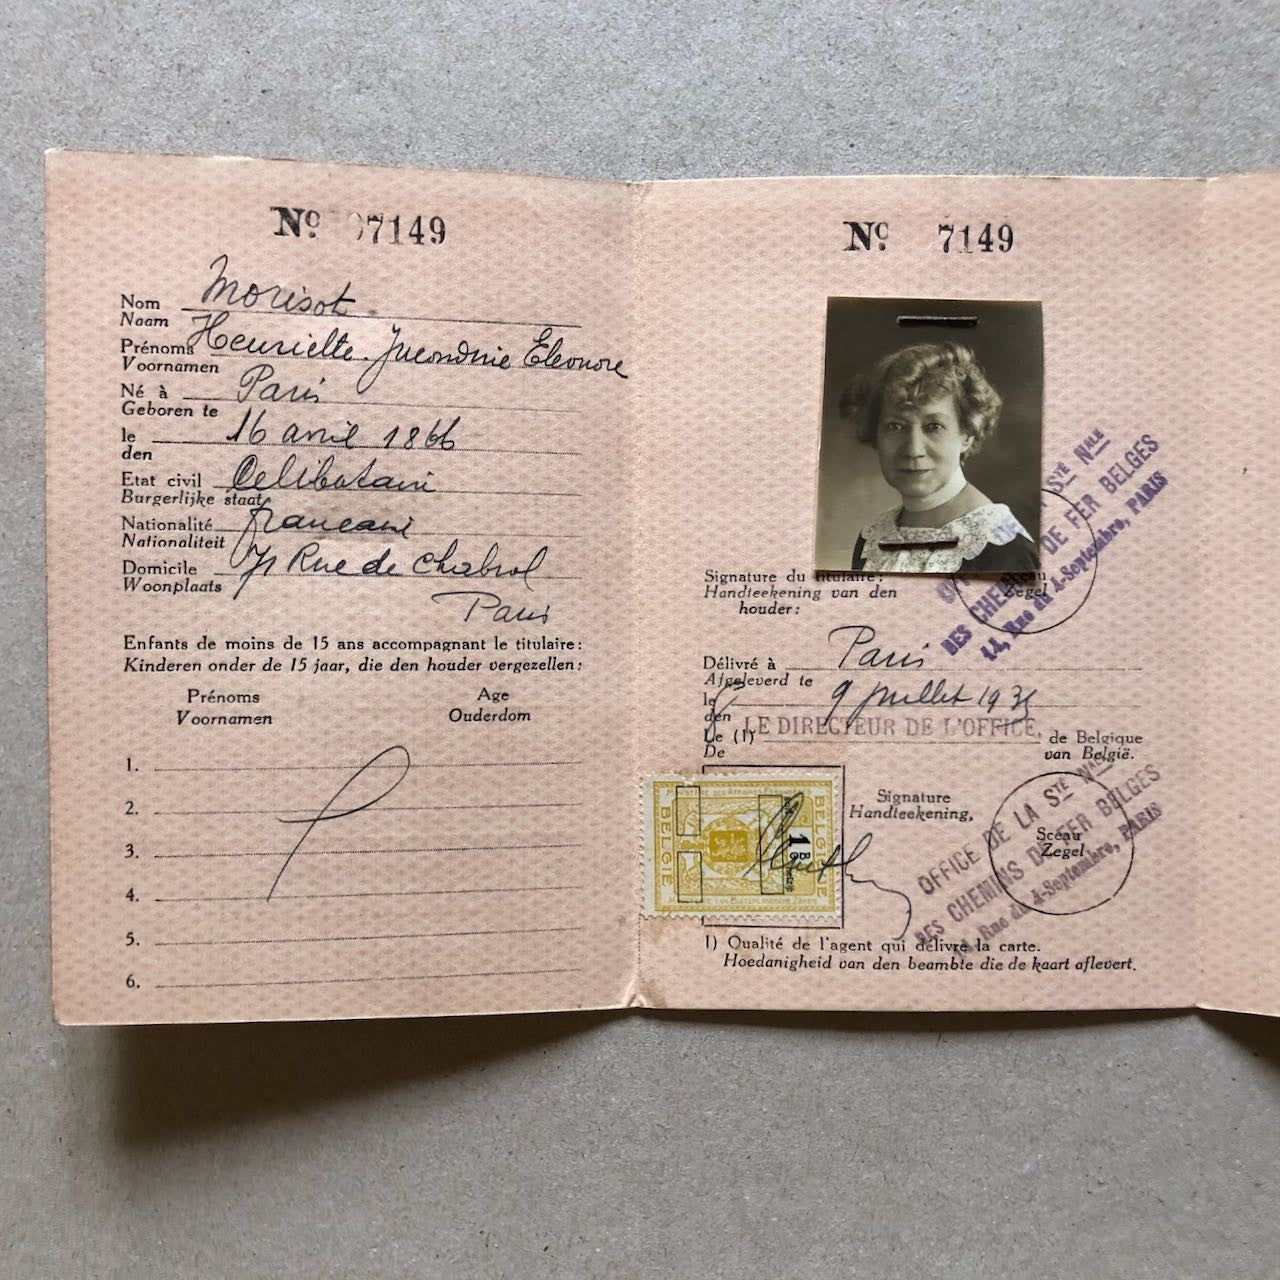 Nº 7149
Nom Morisot
Naam
Prénoms Henriette Eleonore
Voornamen
Né à Paris
Geboren te
le 16 avril 1866
den
Etat civil Celibataire
Burgerlijke staat
Nationalité francaise
Nationaliteit
Domicile Rue de Chabrol
Woonplaats
Paris
Enfants de moins de 15 ans accompagnant le titulaire:
Kinderen onder de 15 jaar, die den houder vergezellen:
Prénoms Age
Voornamen Ouderdom
1.
2.
3.
4.
5.
6.
Nº 7149
Signature du titulaire:
Handteekening van den
houder:
Sceau
Zegel
STÉ NALE
DES CHEMINS DE FER BELGES
14, Rue du 4-Septembre, PARIS
Délivré à Paris
Afgeleverd te
le 9 juillet
den
LE DIRECTEUR DE L'OFFICE,
Le (1) de Belgique
De van België.
BELGIQUE
BELGIË
1
Signature
Handteekening,
Sceau
Zegel
OFFICE DE LA STÉ NALE
DES CHEMINS DE FER BELGES
14, Rue du 4-Septembre, PARIS
1) Qualité de l'agent qui délivre la carte.
Hoedanigheid van den beambte die de kaart aflevert.